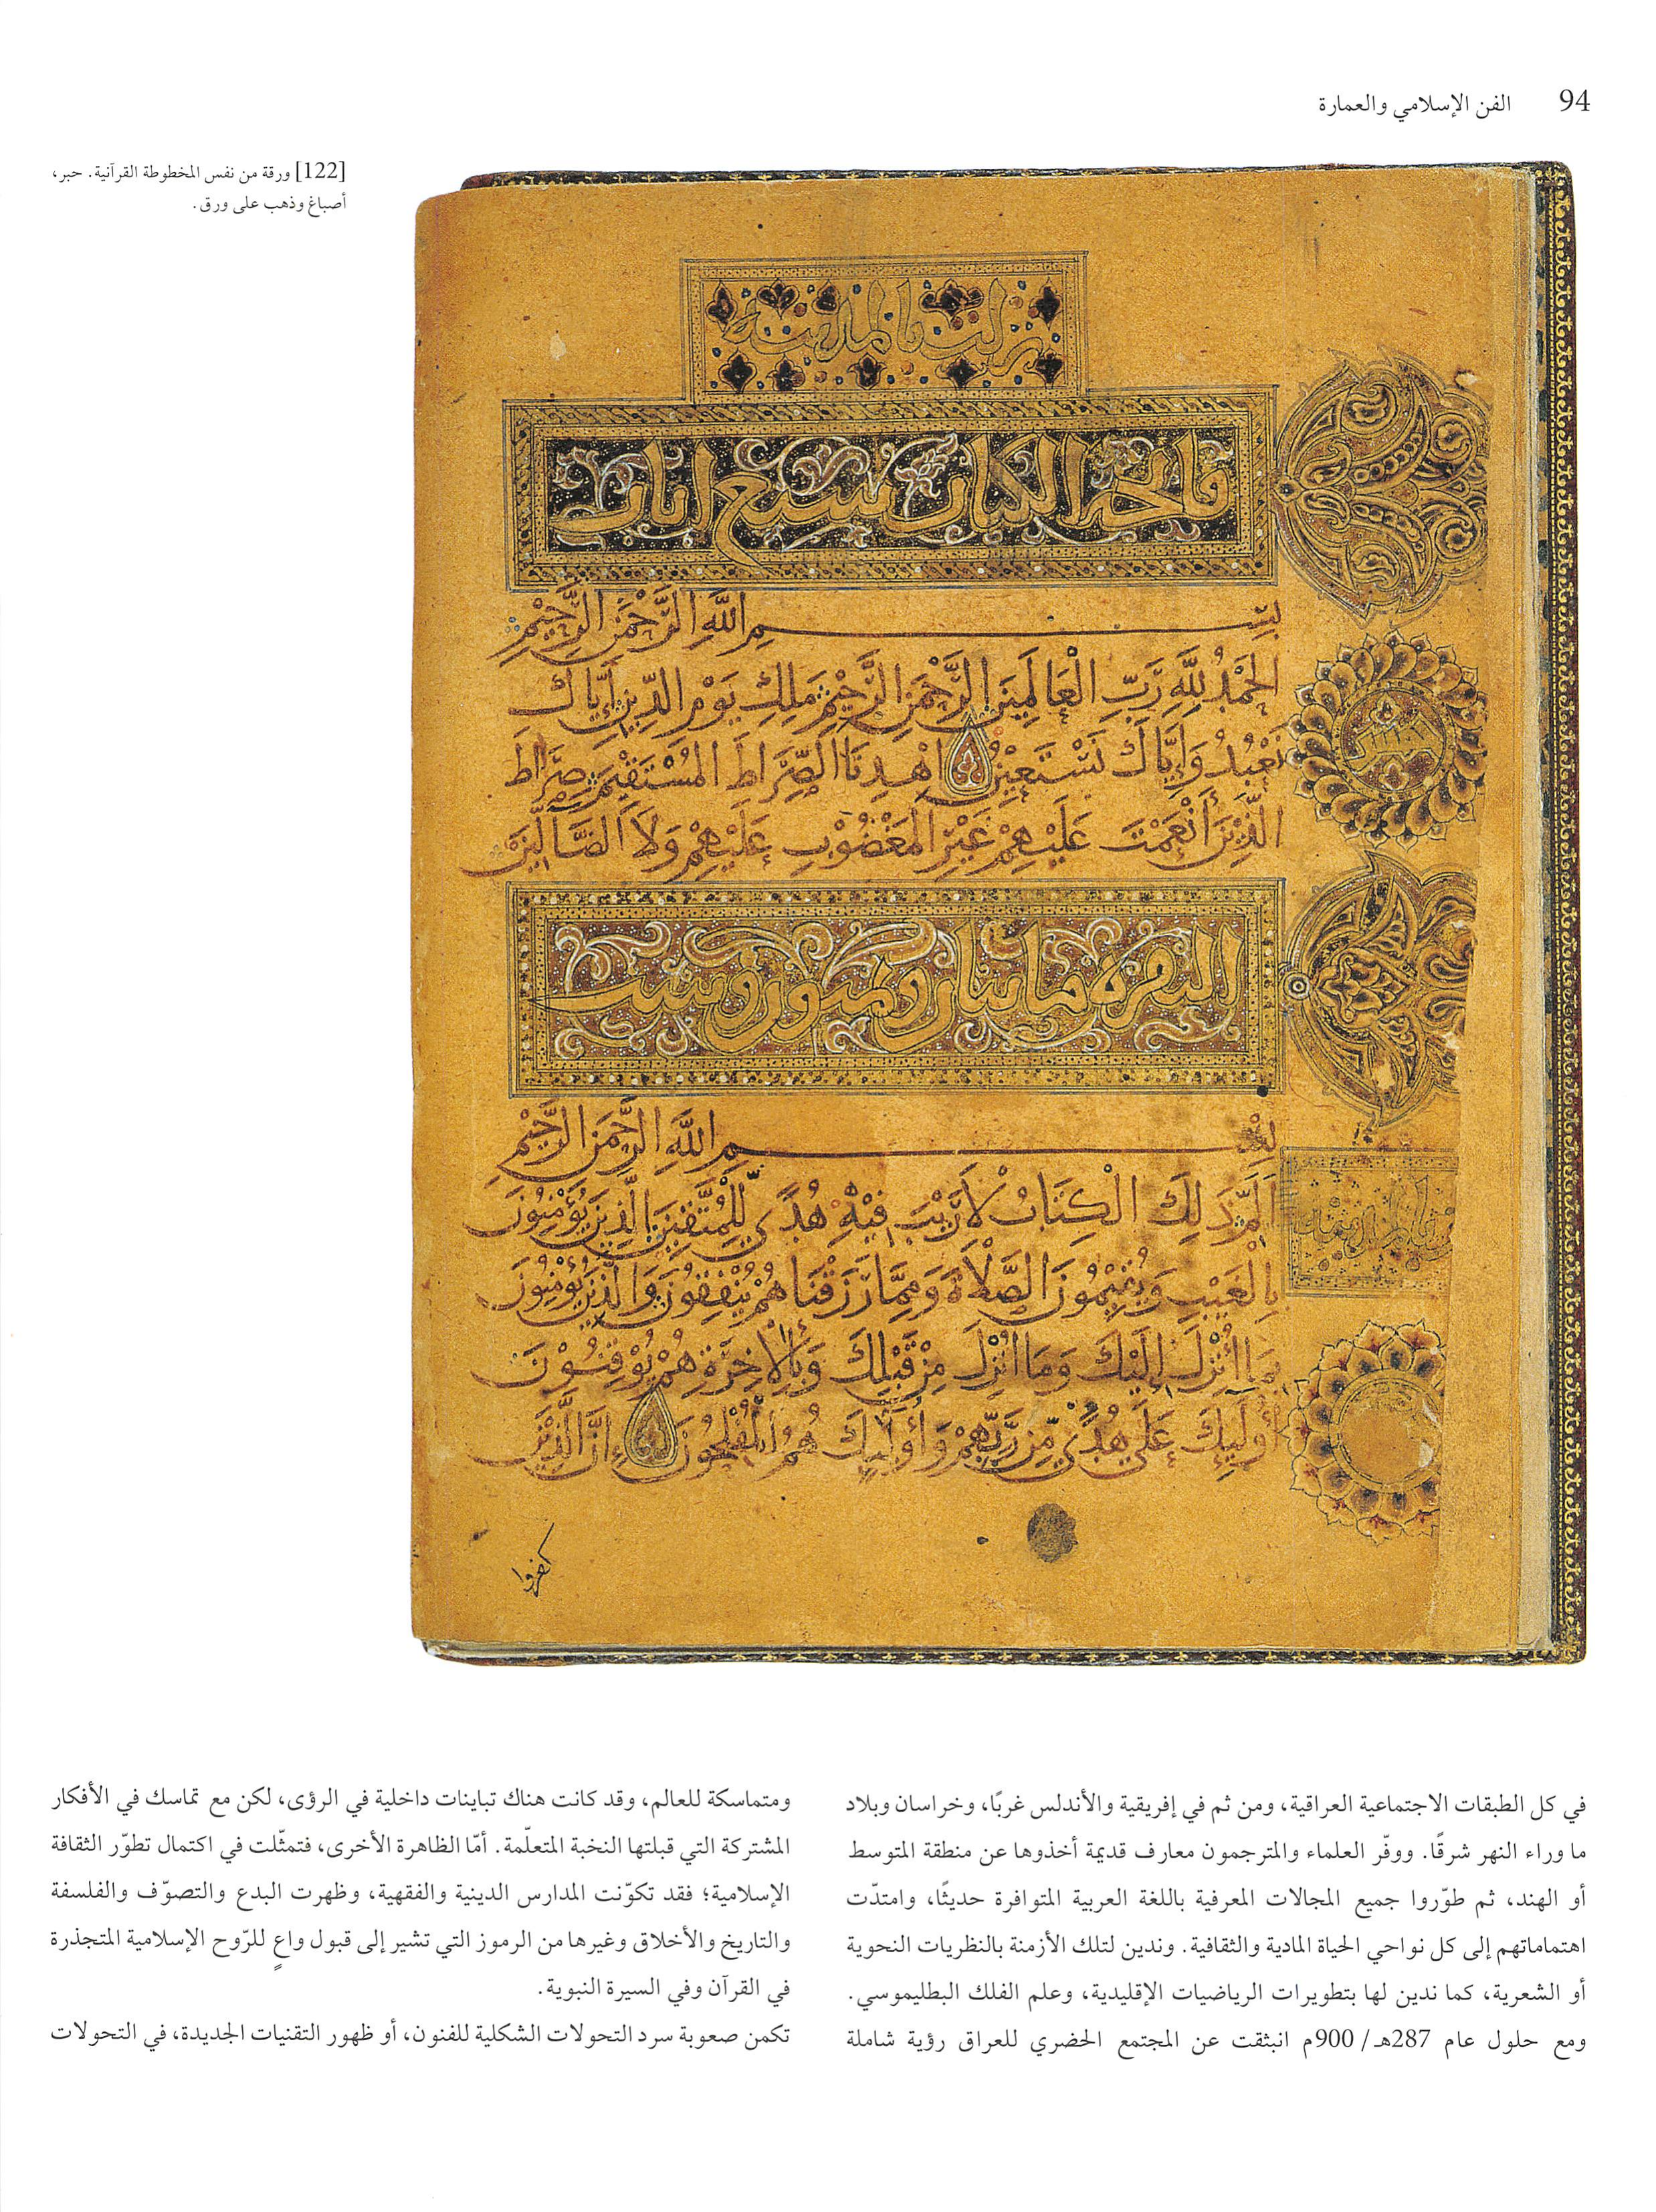 94 الفن الإسلامي والعمارة
[122] ورقة من نفس المخطوطة القرآنية. حبر،
أصباغ وذهب على ورق.
نزلت بالمدينة
فاتحة الكتاب سبع ايات
بِسْمِ اللَّهِ الرَّحْمَنِ الرَّحِيْمِ
الحَمْدُ لِلَّهِ رَبِّ الْعَالَمِيْنَ الرَّحْمَنِ الرَّحِيْمِ مَلِكِ يَوْمِ الدِّيْنِ إِيَّاكَ
نَعْبُدُ وَإِيَّاكَ نَسْتَعِيْنُ اهْدِنَا الصِّرَاطَ الْمُسْتَقِيْمَ صِرَاطَ
الَّذِيْنَ أَنْعَمْتَ عَلَيْهِمْ غَيْرِ الْمَغْضُوْبِ عَلَيْهِمْ وَلَا الضَّالِّيْنَ
البقره مايتان وثمنون وست
بِسْمِ اللَّهِ الرَّحْمَنِ الرَّحِيْمِ
الَمّ ذَلِكَ الْكِتَابُ لَا رَيْبَ فِيْهِ هُدًى لِلْمُتَّقِيْنَ الَّذِيْنَ يُؤْمِنُوْنَ
بِالْغَيْبِ وَيُقِيْمُوْنَ الصَّلَاةَ وَمِمَّا رَزَقْنَاهُمْ يُنْفِقُوْنَ وَالَّذِيْنَ يُؤْمِنُوْنَ
بِمَا أُنْزِلَ إِلَيْكَ وَمَا أُنْزِلَ مِنْ قَبْلِكَ وَبِالْآخِرَةِ هُمْ يُوْقِنُوْنَ
أُوْلَئِكَ عَلَى هُدًى مِنْ رَبِّهِمْ وَأُوْلَئِكَ هُمُ الْمُفْلِحُوْنَ إِنَّ الَّذِيْنَ
كفروا
في كل الطبقات الاجتماعية العراقية، ومن ثم في إفريقية والأندلس غربًا، وخراسان وبلاد
ما وراء النهر شرقًا. ووفّر العلماء والمترجمون معارف قديمة أخذوها عن منطقة المتوسط
أو الهند، ثم طوّروا جميع المجالات المعرفية باللغة العربية المتوافرة حديثًا، وامتدّت
اهتماماتهم إلى كل نواحي الحياة المادية والثقافية. وندين لتلك الأزمنة بالنظريات النحوية
أو الشعرية، كما ندين لها بتطويرات الرياضيات الإقليدية، وعلم الفلك البطليموسي.
ومع حلول عام 287هـ/ 900م انبثقت عن المجتمع الحضري للعراق رؤية شاملة
ومتماسكة للعالم، وقد كانت هناك تباينات داخلية في الرؤى، لكن مع تماسك في الأفكار
المشتركة التي قبلتها النخبة المتعلّمة. أمّا الظاهرة الأخرى، فتمثّلت في اكتمال تطوّر الثقافة
الإسلامية؛ فقد تكوّنت المدارس الدينية والفقهية، وظهرت البدع والتصوّف والفلسفة
والتاريخ والأخلاق وغيرها من الرموز التي تشير إلى قبول واعٍ للرّوح الإسلامية المتجذرة
في القرآن وفي السيرة النبوية.
تكمن صعوبة سرد التحولات الشكلية للفنون، أو ظهور التقنيات الجديدة، في التحولات